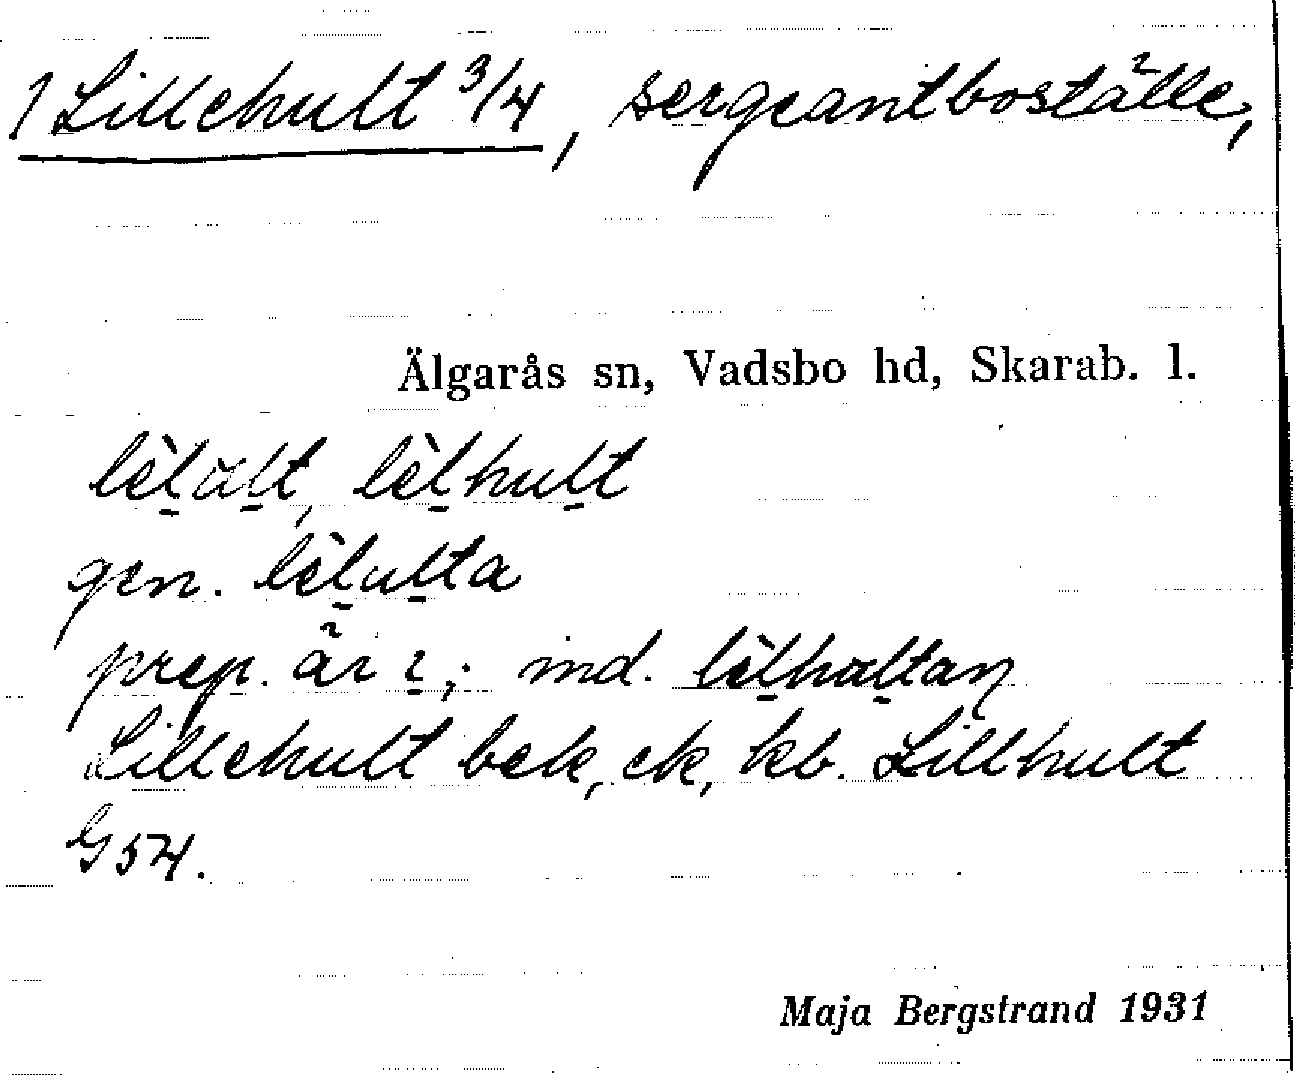 1 Lillehult 3/4, sergeantboställe,
Älgarås sn, Vadsbo hd, Skarab. l.
lèlált, lèlhult
gen. lèlulta
prep. är ı; ind. lèlhaltaŋ
Lillehult bek, ek, kb. Lillhult
G 54.
Maja Bergstrand 1931